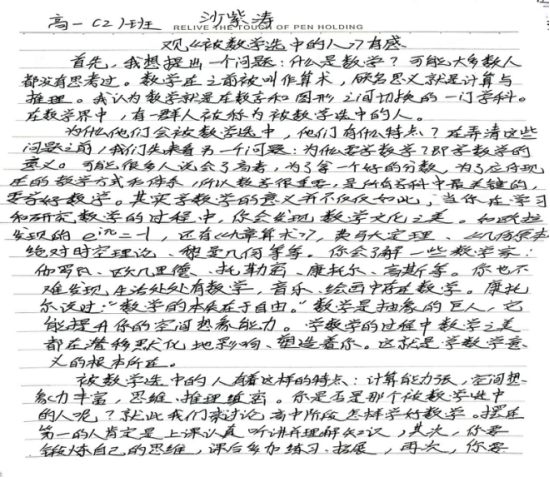 高一(2)班 沙紫涛
RELIVE THE TOUCH OF PEN HOLDING
观《被数学选中的人》有感
首先,我想提出一个问题:什么是数学?可能大多数人
都没有思考过。数学在之前被叫作算术,顾名思义就是计算与
推理。我认为数学就是在数字和图形之间切换的一门学科。
在数学界中,有一群人被称为被数学选中的人。
为什么他们会被数学选中,他们有什么特点?在弄清这些
问题之前,我们先来看另一个问题:为什么要学数学?即学数学的
意义。可能很多人说会了高考,为了拿一个好的分数,为了应付现
在的教学方式和体系,所以数学很重要,是所有学科中最关键的,
要学好数学。其实学数学的意义并不仅仅如此,当你在学习
和研究数学的过程中,你会发现数学文化之美。如欧拉
发现的e^iπ=-1,还有《九章算术》,费马大定理,《几何原本》
绝对时空理论、黎曼几何等等。你会了解一些数学家:
伽罗瓦、欧几里德、托勒密、康托尔、高斯等。你也不
难发现生活处处有数学,音乐、绘画中存在数学。康托
尔说过:“数学的本质在于自由。”数学是抽象的巨人,它
能提升你的空间想象能力。学数学的过程中数学之美
都在潜移默化地影响、塑造着你。这就是学数学意
义的根本所在。
被数学选中的人有着这样的特点:计算能力强,空间想
象力丰富,思维、推理缜密。你是否是那个被数学选中
的人呢?就此我们来讨论高中阶段怎样学好数学。摆在
第一的人肯定是上课认真听讲并理解知识,其次,你要
锻炼自己的思维,课后多加练习、拓展,再次,你要